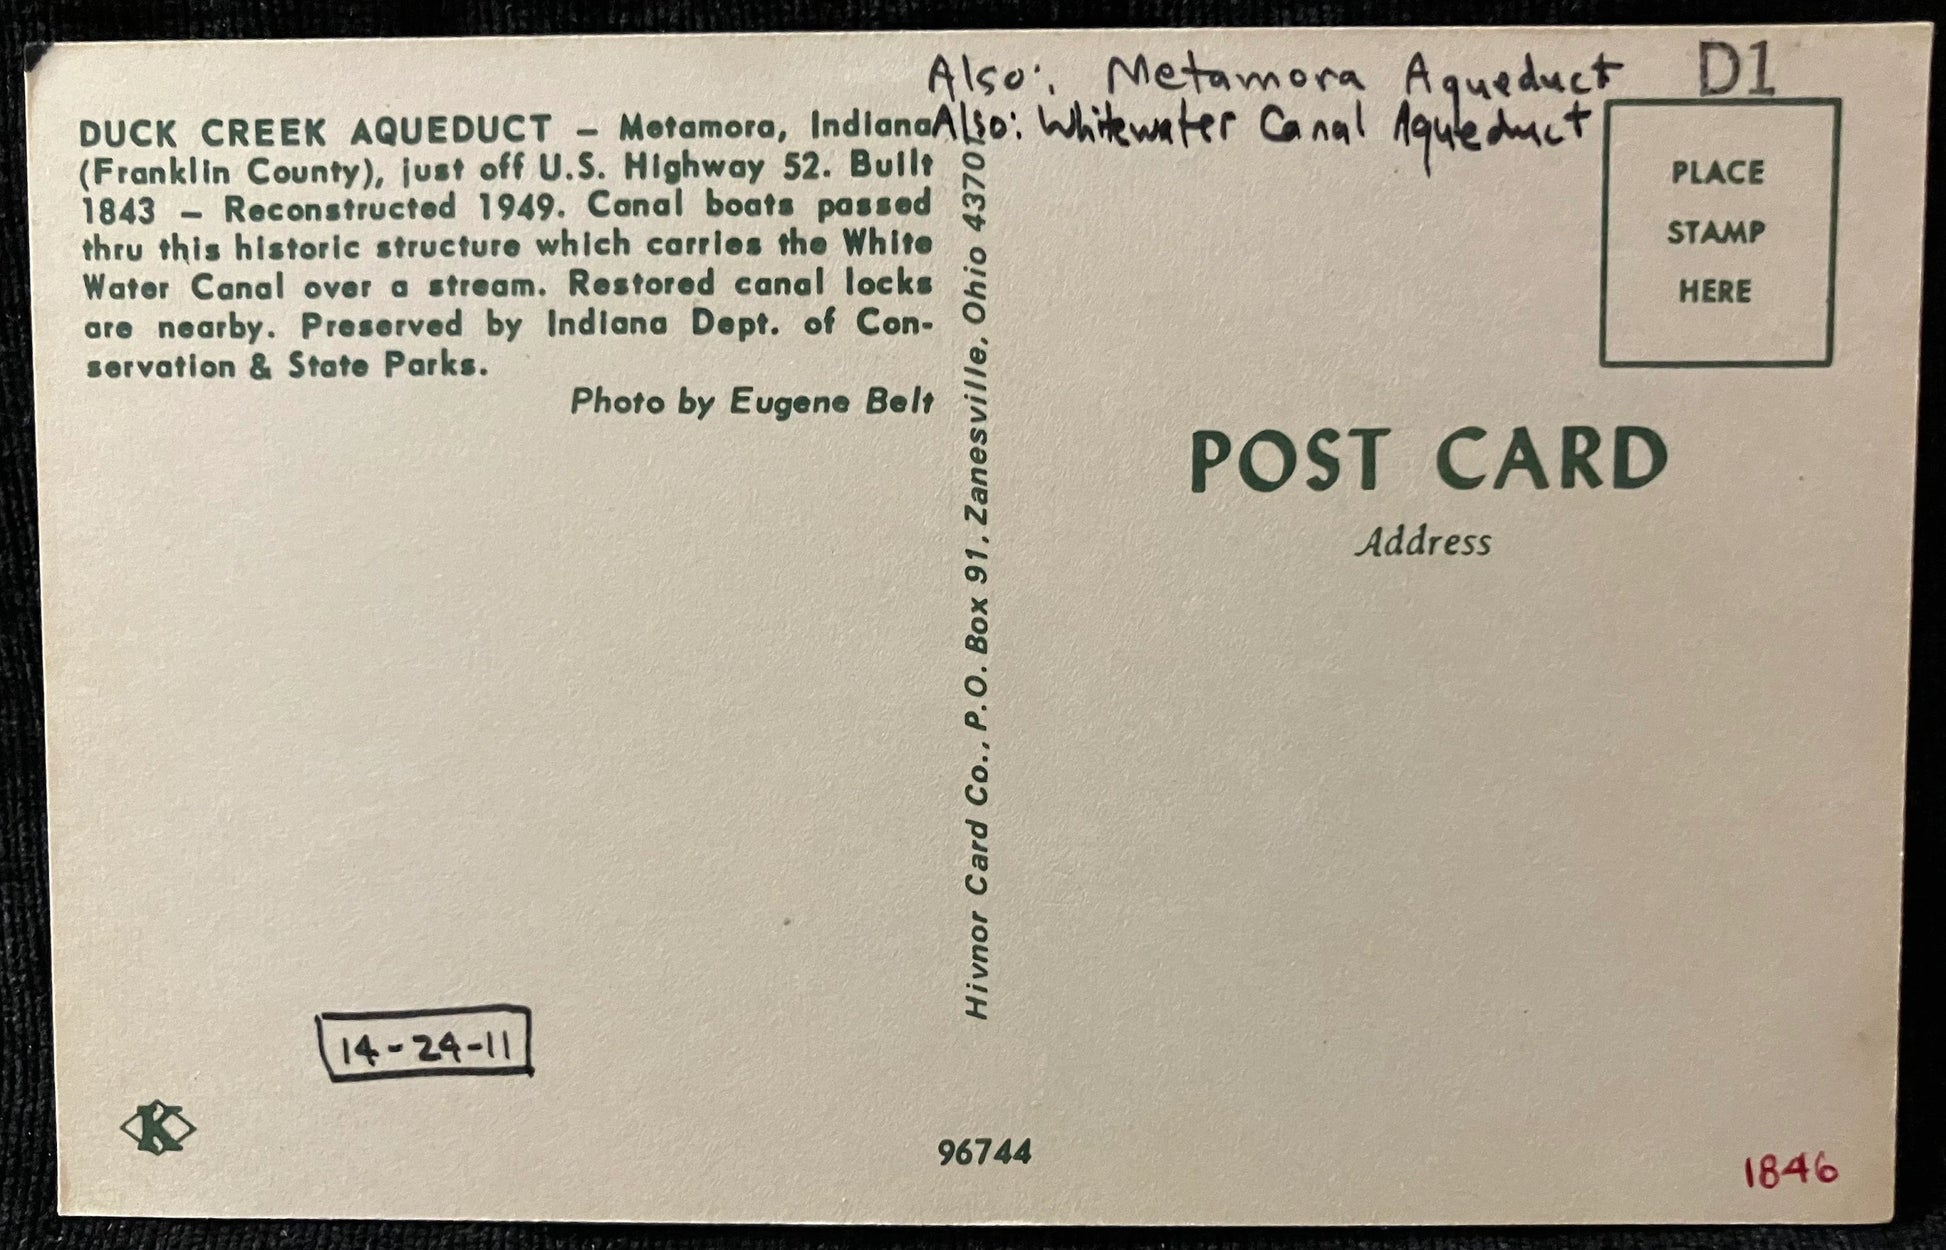 Also: Metamora Aqueduct D1
Also: Whitewater Canal Aqueduct
DUCK CREEK AQUEDUCT – Metamora, Indiana
(Franklin County), just off U.S. Highway 52. Built
1843 – Reconstructed 1949. Canal boats passed
thru this historic structure which carries the White
Water Canal over a stream. Restored canal locks
are nearby. Preserved by Indiana Dept. of Con-
servation & State Parks.
Photo by Eugene Belt
Hivnor Card Co., P.O. Box 91, Zanesville, Ohio 43701
PLACE
STAMP
HERE
POST CARD
Address
14-24-11
K
96744
1846